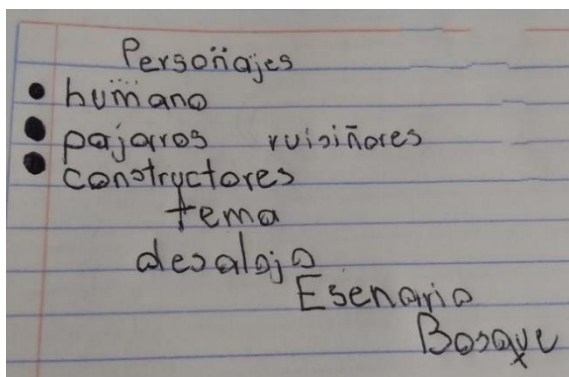 Personajes
humano
pajarros ruisiñores
constructores
tema
desalojo
Esenario
Bosque